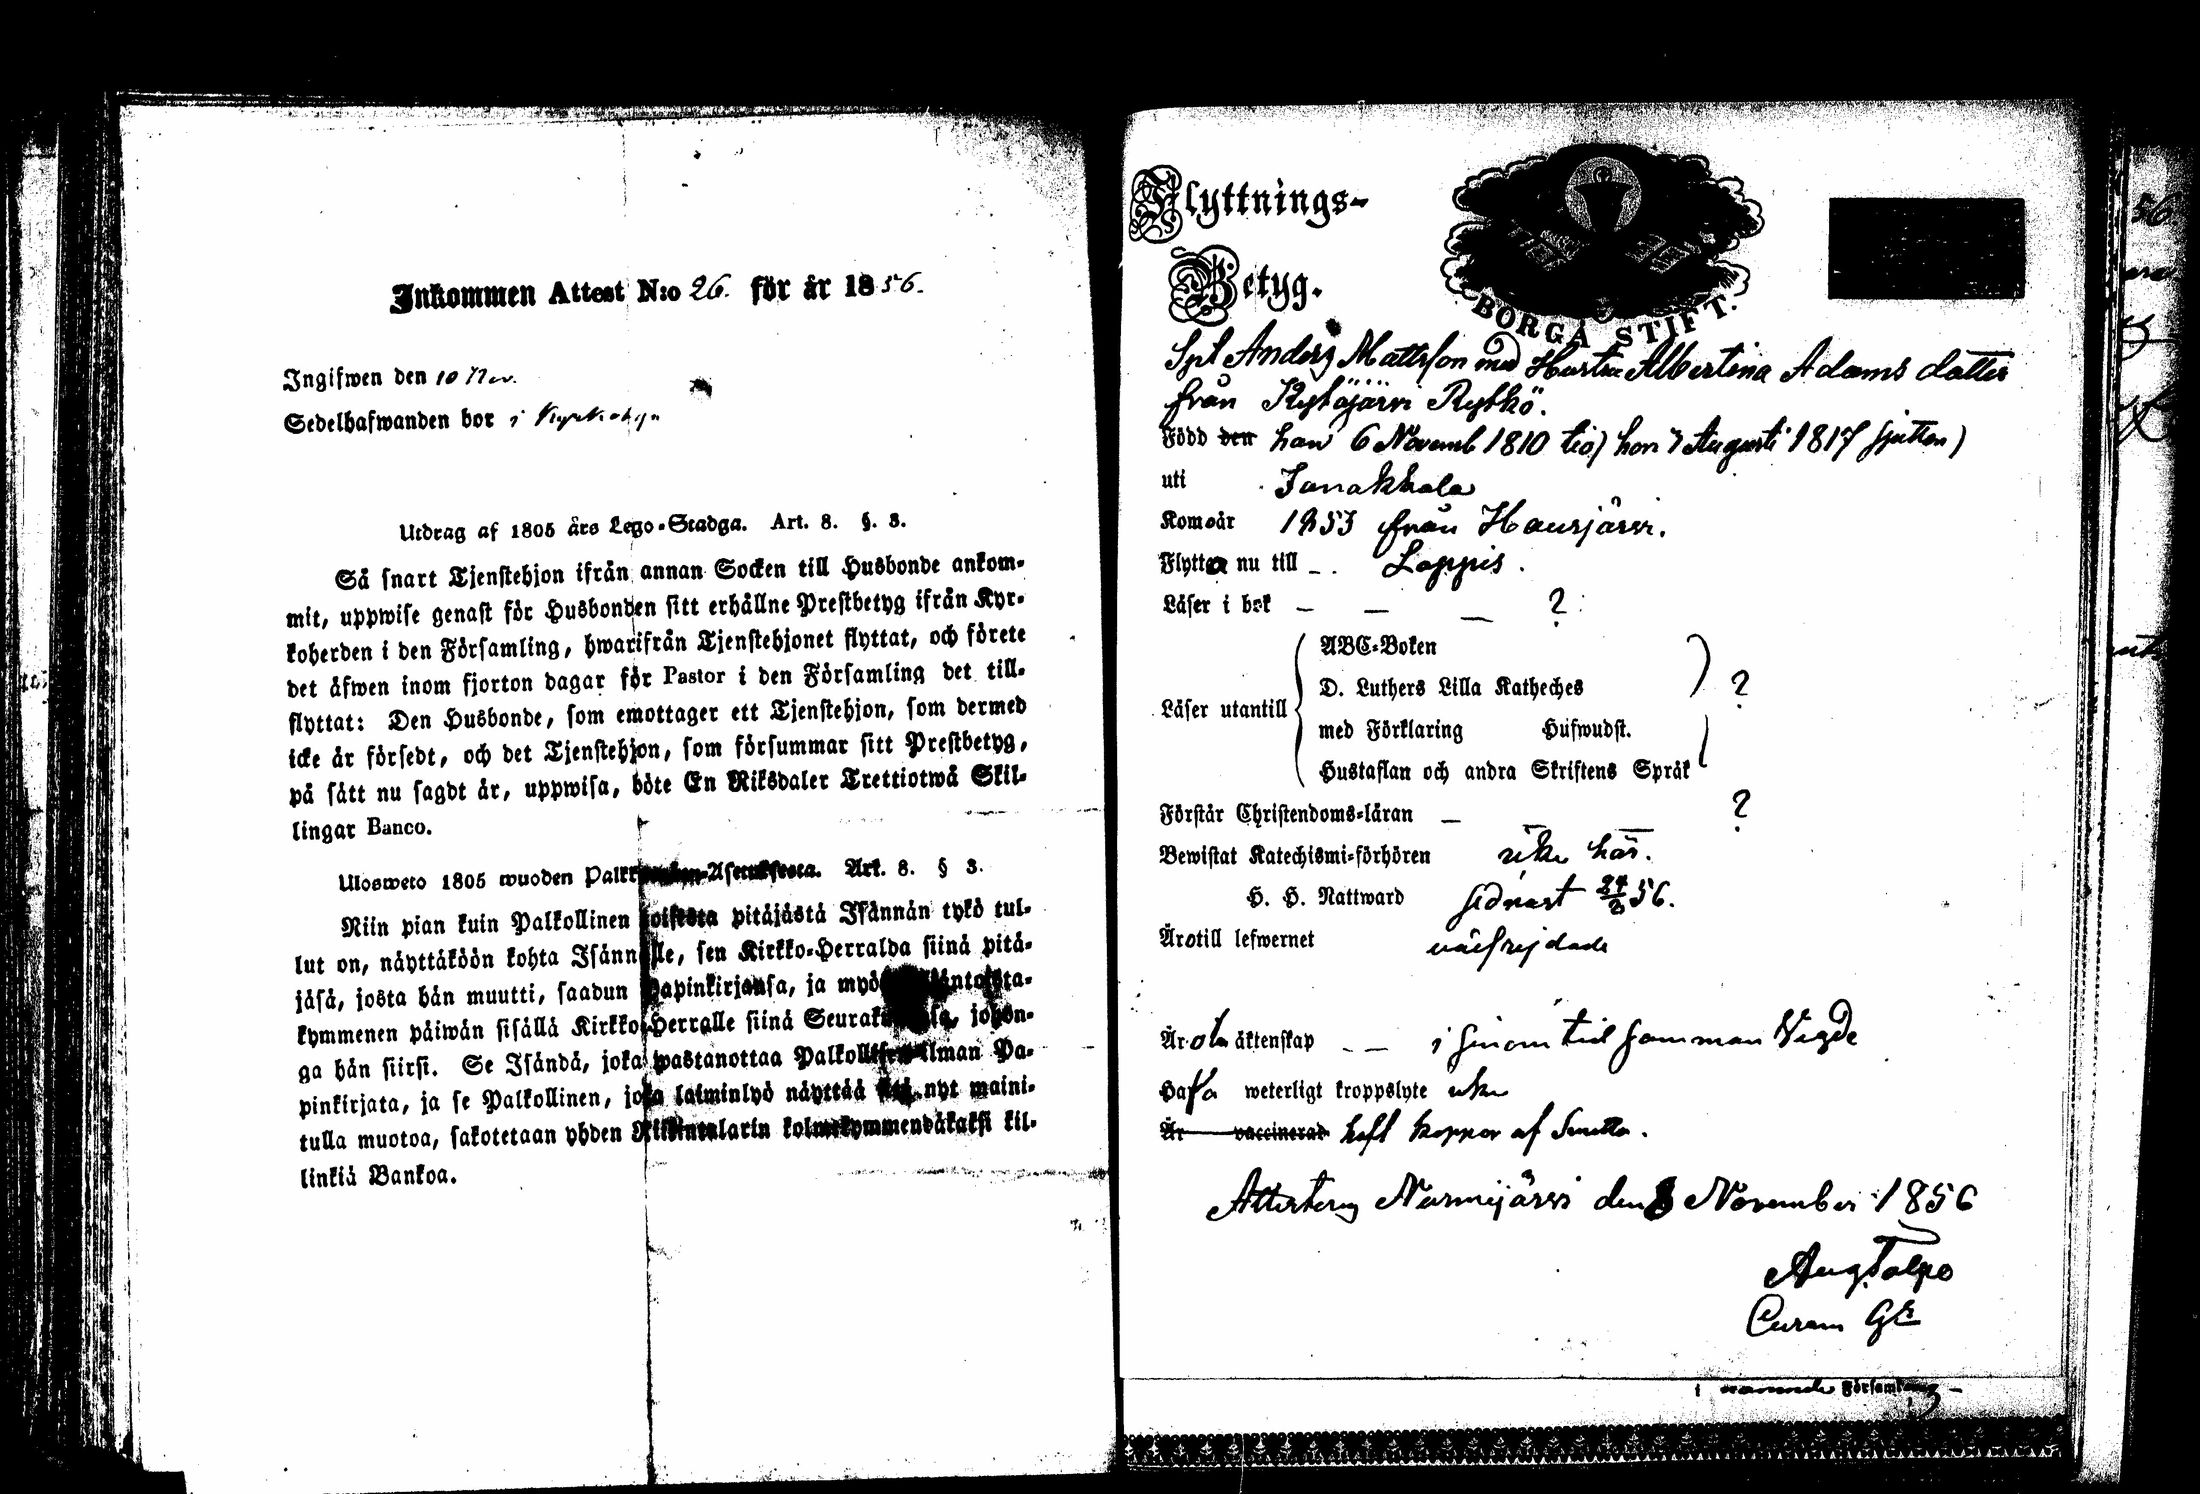 Inkommen Attest N:o 26. för år 1856.
Ingifwen den 10 Nov.
Sedelhafwanden bor i
Utdrag af 1805 års Lego-Stadga. Art. 8. §. 3.
Så snart Tjenstehjon ifrån annan Socken till Husbonde ankom-
mit, uppwise genast för Husbonden sitt erhållne Prestbetyg ifrån Kyr-
koherden i den Församling, hwarifrån Tjenstehjonet flyttat, och förete
det äfwen inom fjorton dagar för Pastor i den Församling det till-
flyttat: Den Husbonde, som emottager ett Tjenstehjon, som dermed
icke är försedt, och det Tjenstehjon, som försummar sitt Prestbetyg,
på sätt nu sagdt är, uppwisa, böte En Riksdaler Trettiotwå Skil-
lingar Banco.
Ulosweto 1805 wuoden Art. 8. § 3.
Niin pian kuin Palkollinen toisesta pitäjästä Isännän tykö tul-
lut on, näyttäköön kohta Isännälle, sen Kirkko-Herralda siinä pitä-
jäsä, josta hän muutti, saadun Papinkirjansa, ja myö
kymmenen päiwän sisällä Kirkko-Herralle siinä johon-
ga hän siirsi. Se Isändä, joka wastanottaa Palkollisen ilman Pa-
pinkirjata, ja se Palkollinen, joka laiminlyö näyttää sitä nyt maini-
tulla muotoa, sakotetaan yhden Riikintalarin kolmekymmendäkaksi kil-
linkiä Bankoa.
Flyttnings-
Betyg.
BORGÅ STIFT.
Spl Anders Mattsson med Hustru Albertina Adams dotter
från Kytäjärvi Rytkö.
Född den han 6 Novemb 1810 tio) hon 7 Augusti 1817 sjutton)
uti Janakkala
Kom år 1853 från Hausjärvi.
Flytta nu till - . Loppis.
Läser i bok — — — ?
Läser utantill
ABC-Boken
D. Luthers Lilla Katheches
med Förklaring Hufwudst.
Hustaflan och andra Skriftens Språk
?
Förstår Christendoms-läran — ?
Bewistat Katechismi-förhören icke här.
H. H. Nattward sednast 56.
Äro till lefwernet välfrejdade
Äro äktenskap - — i sinom tid samman Vigde
Hafva weterligt kroppslyte icke
Är vaccinerad haft koppor af Smitta.
Attesterar Nurmijärvi den 8 November 1856
Aug Talpo
i nämnde Församling